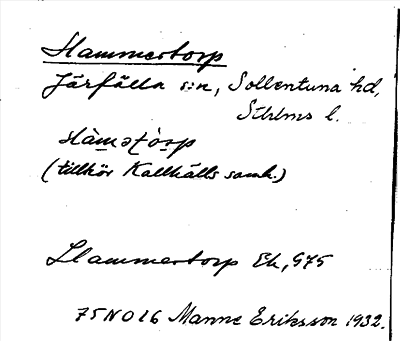 Hammertorp
Järfälla s:n, Sollentuna hd,
Sthlms l.
(tillhör Kallhälls samh.)
Hammertorp Ek, 975
75 NO 16 Manne Eriksson 1932.